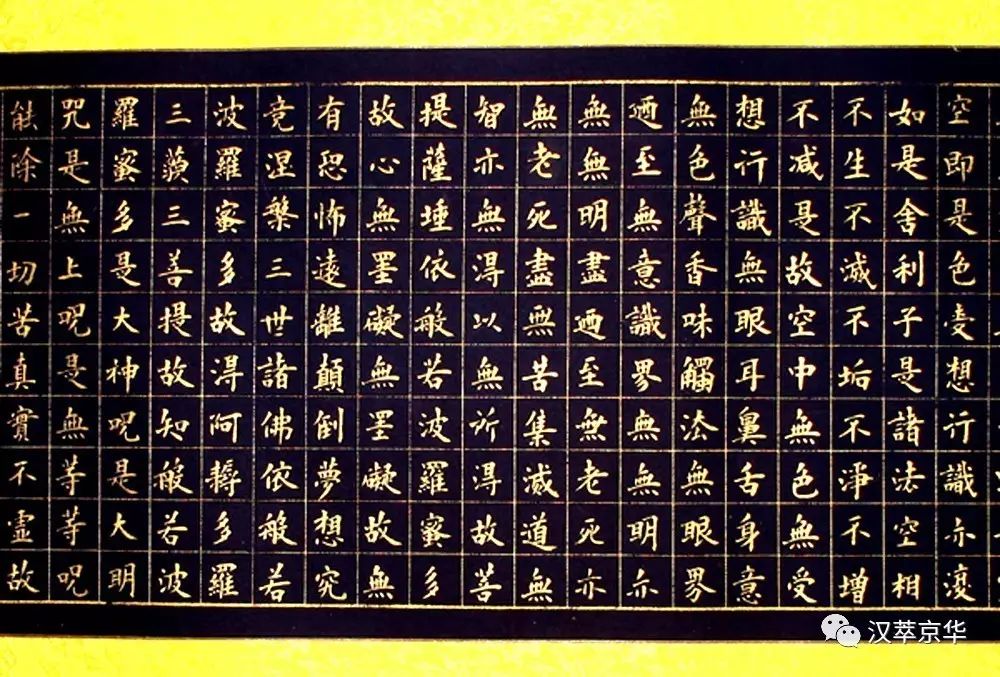 空即是色受想行識亦復
如是舍利子是諸法空相
不生不滅不垢不淨不增
不减是故空中無色無受
想行識無眼耳鼻舌身意
無色聲香味觸法無眼界
迺至無意識界無無明亦
無無明盡迺至無老死亦
無老死盡無苦集滅道無
智亦無得以無所得故菩
提薩埵依般若波羅蜜多
故心無罣礙無罣礙故無
有恐怖遠離顛倒夢想究
竟涅槃三世諸佛依般若
波羅蜜多故得阿耨多羅
三藐三菩提故知般若波
羅蜜多是大神呪是大明
咒是無上呪是無等等呪
能除一切苦真實不虛故
汉萃京华